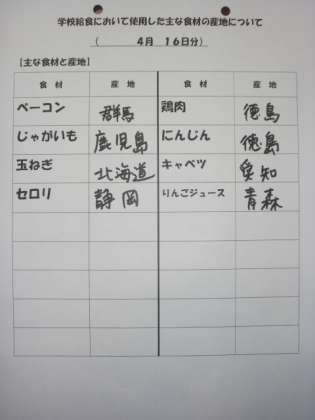 学校給食において使用した主な食材の産地について
（　　　４月　１６日分）
【主な食材と産地】
食　材　産　地　食　材　産　地
ベーコン　群馬　鶏肉　徳島
じゃがいも　鹿児島　にんじん　徳島
玉ねぎ　北海道　キャベツ　愛知
セロリ　静岡　りんごジュース　青森